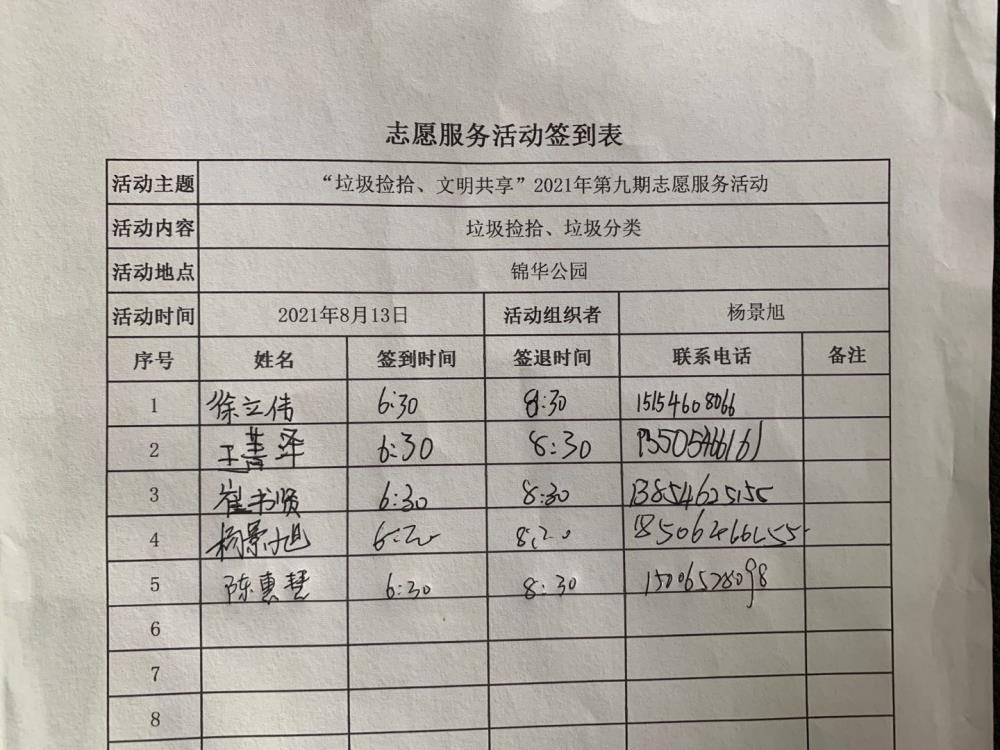 志愿服务活动签到表
活动主题 “垃圾捡拾、文明共享”2021年第九期志愿服务活动
活动内容 垃圾捡拾、垃圾分类
活动地点 锦华公园
活动时间 2021年8月13日 活动组织者 杨景旭
序号 姓名 签到时间 签退时间 联系电话 备注
1 徐立伟 6:30 8:30 15154608066
2 王菁泽 6:30 8:30 13505466161
3 崔书贤 6:30 8:30 13854625155
4 杨景旭 8:20 18506466255
5 陈惠慧 6:30 8:30 15006528098
6
7
8